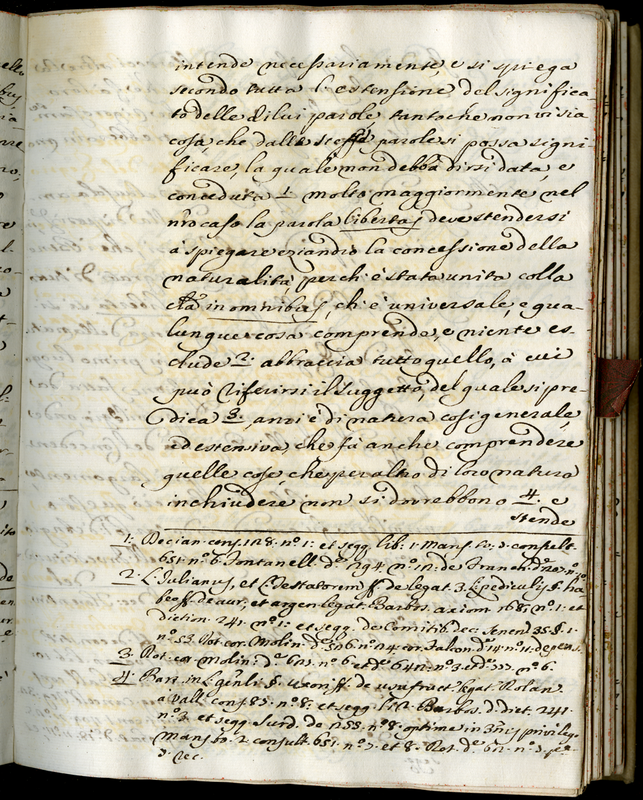 intende necessariamente, e si spiega
secondo tutta l'estensione del significa-
to delle di lui parole tantoche non vi sia
cosa, che dalle stesse parole si possa signi-
ficare, la quale non debba dirsi data e
conceduta 1. molto maggiormente nel
nr̃o caso la parola libertas deve stendersi
à spiegare eziandio la concessione della
naturalità, perche è stata unita colla
in omnibus, ch'è universale, e qua-
lunque cosa comprende, e niente es-
clude 2. abbraccia tutto quello, à cui
può riferirsi il suggetto, del quale si pre-
dica 3., anzi è di natura cosi generale,
ed estensiva, che fà anche comprendere
quelle cose, che per altro di loro natura
inchiudere non si dovrebbono 4. e
stende
1. Decian. cons. 128. nº. 1. et segg. lib. 1. Mans. to. 7. consult.
651. nº. 6. Fontanell. dẽ 294. nº. 12. de Franch. dẽ
2. L. Julianus, et L. Testatorum ff. de legat. 3. L. pediculis §.
ff. de aur. et argen. legat. Barbos. axiom. 168. nº. 1. et
diction. 241. nº. 1. et segg. de Comitib. dec. Senen. 35. §. 1.
nº. 53. Rot. cor. Molin. dẽ 506. nº. 24. cor. Falcon. dẽ 14. nº. 11. de
3. Rot. cor. Molin. dẽ nº. 6. et dẽ 641. nº. 3. nº. 6.
4. Bart. in L. §. uxori ff. de usufruct. legat. Rolan.
à Vall. cons. 85. nº. 8. et segg. lib. 2. Barbos. d. dict. 241.
nº. 3. et segg. Surd. dẽ 155. nº. 8. optime in privileg.
Mans. to. 2. consult. 651. nº. 7. et 8. Rot. dẽ nº. 7.
rec.